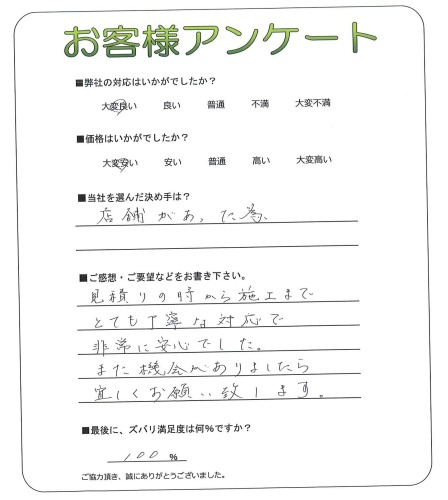 お客様アンケート
■弊社の対応はいかがでしたか?
大変良い 良い 普通 不満 大変不満
■価格はいかがでしたか?
大変安い 安い 普通 高い 大変高い
■当社を選んだ決め手は?
店舗があった為、
■ご感想・ご要望などをお書き下さい。
見積りの時から施工まで
とても丁寧な対応で
非常に安心でした。
また機会がありましたら
宜しくお願い致します。
■最後に、ズバリ満足度は何%ですか?
100 %
ご協力頂き、誠にありがとうございました。